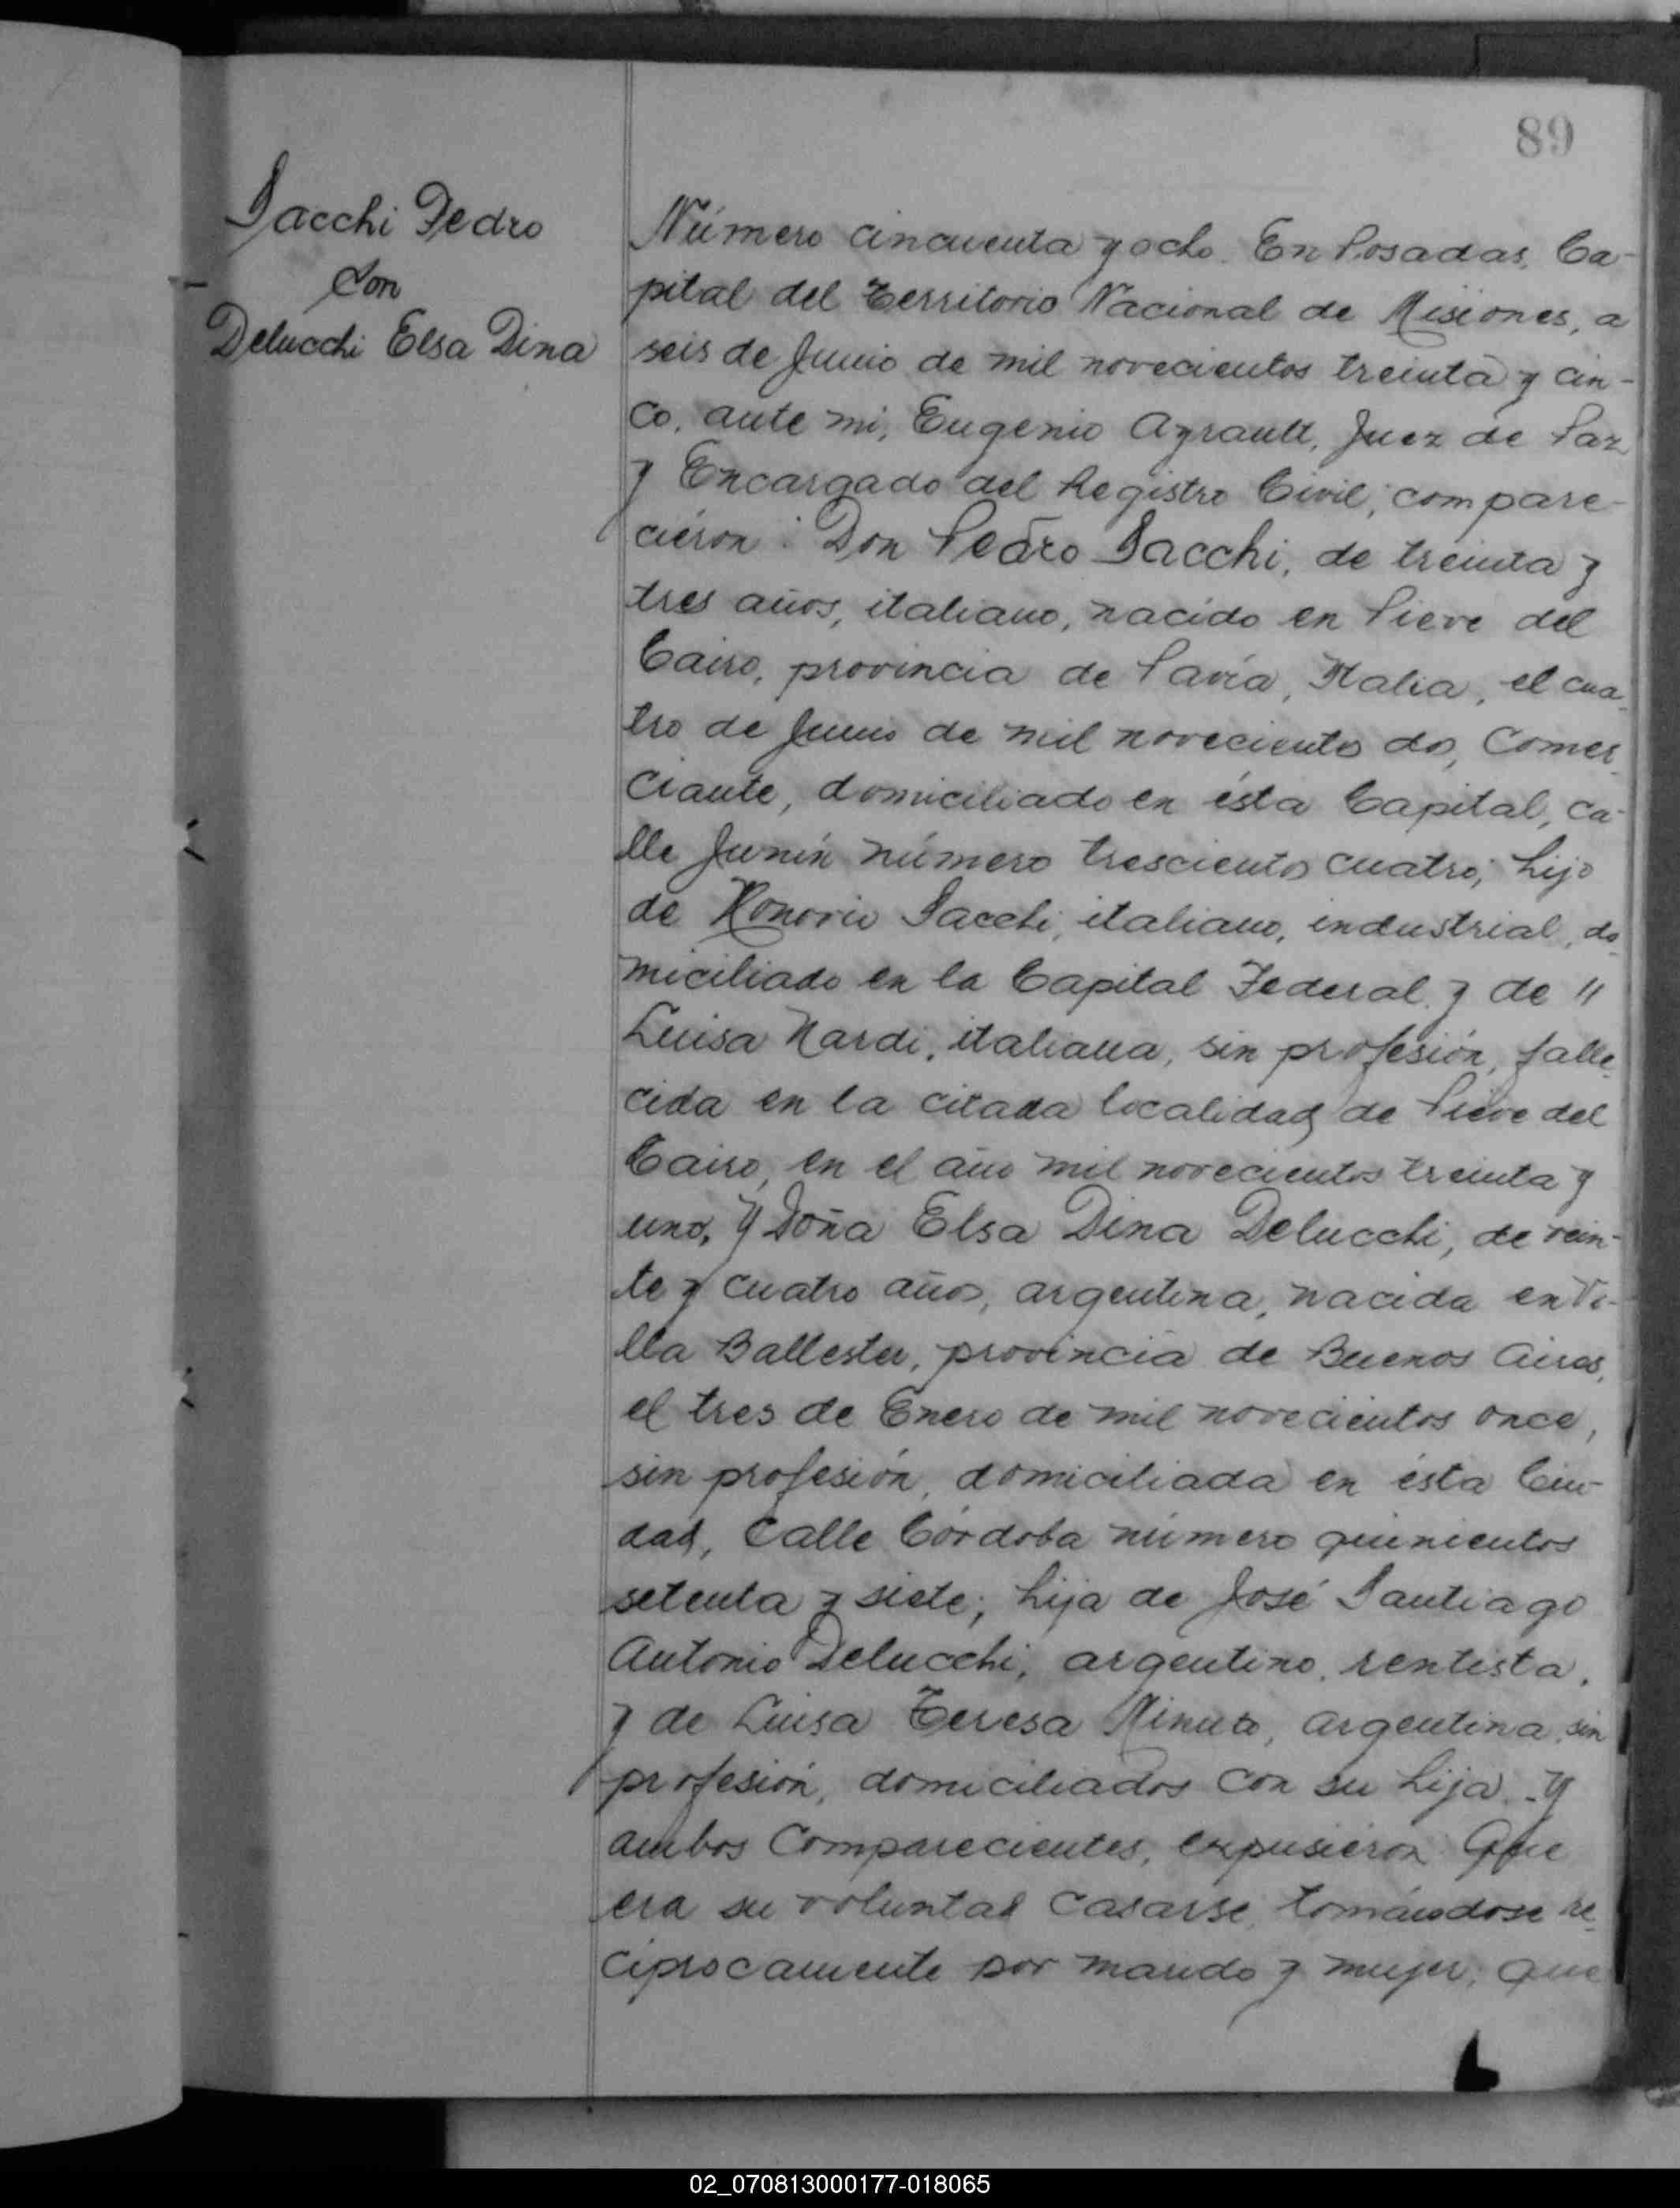 89
Sacchi Pedro
Con
Delucchi Elsa Dina
Número cincuenta y ocho. En Posadas, Ca-
pital del Territorio Nacional de Misiones, a
seis de Junio de mil novecientos treinta y cin-
co, ante mi, Eugenio Ayrault, Juez de Paz
y Encargado del Registro Civil; compare-
cieron: Don Pedro Sacchi, de treinta y
tres años, italiano, nacido en Pieve del
Cairo, provincia de Pavía, Italia, el cua-
tro de Junio de mil novecientos dos, Comer-
ciante, domiciliado en ésta Capital, ca-
lle Junín número trescientos cuatro; hijo
de Honorio Sacchi, italiano, industrial, do-
miciliado en la Capital Federal y de "
Luisa Nardi, italiana, sin profesión, falle-
cida en la citada localidad de Pieve del
Cairo, en el año mil novecientos treinta y
uno. Y Doña Elsa Dina Delucchi, de vein-
te y cuatro años, argentina, nacida en Vi-
lla Ballester, provincia de Buenos Aires,
el tres de Enero de mil novecientos once,
sin profesión, domiciliada en ésta Ciu-
dad, Calle Córdoba número quinientos
setenta y siete; hija de José Santiago
Antonio Delucchi, argentino, rentista,
y de Luisa Teresa Minuto, argentina, sin
profesión, domiciliados con su hija. Y
ambos Comparecientes, expusieron Que
era su voluntad casarse, tomándose re-
ciprocamente por marido y mujer; que
02_070813000177-018065